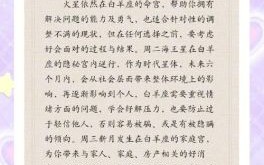 火星依然在白羊座的命宫，帮助你拥有
解决问题的能力及勇气，也适合针对性的调
整不满的现状，但在任何选择之前，要考虑
好会面对的过程与结果。周二海王星在白羊
座的隐秘宫内逆行。作为时代星体，未来六
个月内，会从社会层面带来整体环境上的影
响，再逐渐影响到个人。白羊座需要重视情
绪方面的问题，学会纾解压力，也要防止过
于轻信他人，否则容易被骗，或是有被隐瞒
的倾向。周三新月发生在白羊座的家庭宫，
为你带来与家人、家庭、房产相关的好消